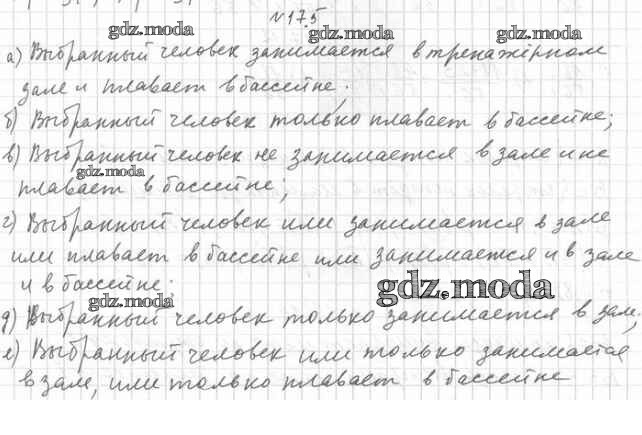 №17.5
gdz.moda gdz.moda gdz.moda
а) Выбранный человек занимается в тренажёрном
зале и плавает в бассейне;
б) Выбранный человек только плавает в бассейне;
в) Выбранный человек не занимается в зале и не
gdz.moda
плавает в бассейне;
г) Выбранный человек или занимается в зале
или плавает в бассейне или занимается и в зале
и в бассейне;
gdz.moda gdz.moda
д) Выбранный человек только занимается в зале;
е) Выбранный человек или только занимается
в зале, или только плавает в бассейне